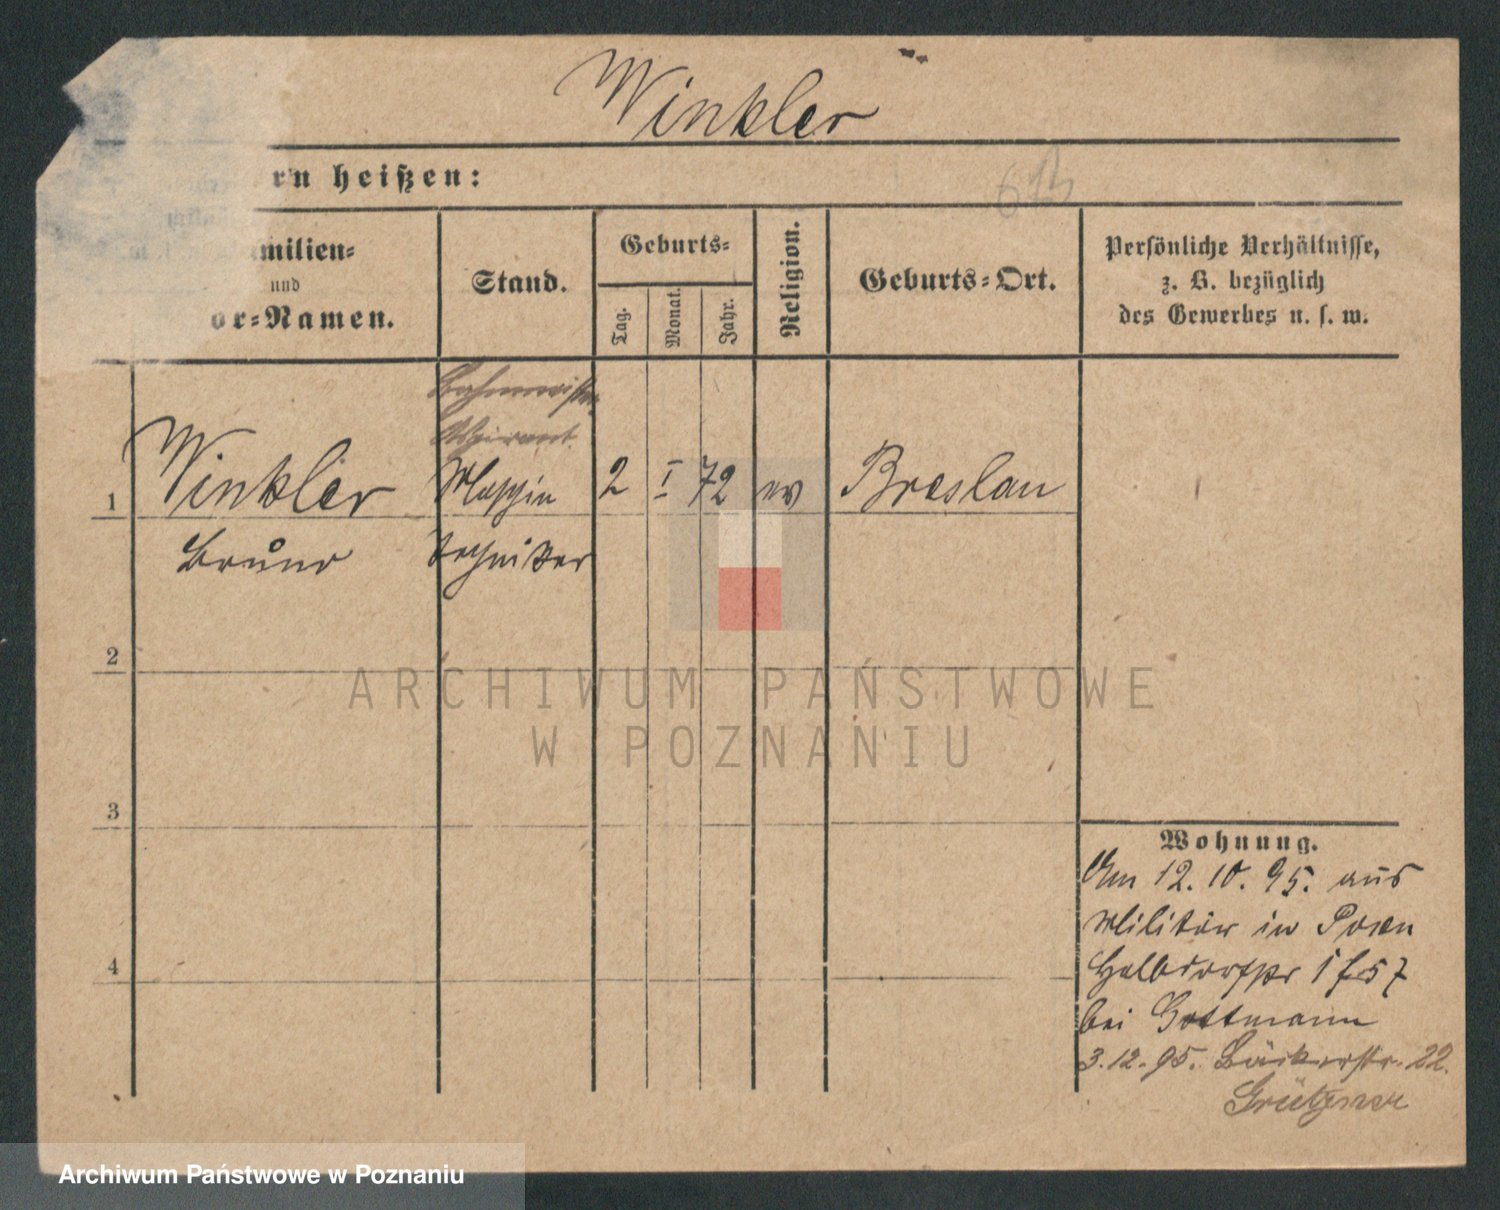 Winkler
rn heißen:
milien=
und
or=Namen.
Stand.
Geburts=
Tag.
Monat.
Jahr.
Religion.
Geburts=Ort.
Persönliche Verhältnisse,
z. B. bezüglich
des Gewerbes u. s. w.
Aspirant
1 Winkler 2 I 72 ev Breslau
Bruno Techniker
2
3
4
Wohnung.
Am 12.10.95. aus
Militär in Posen
Halbdorfstr
bei Gottmann
3.12.95. Bäckerstr. 22.
ARCHIWUM PAŃSTWOWE
W POZNANIU
Archiwum Państwowe w Poznaniu